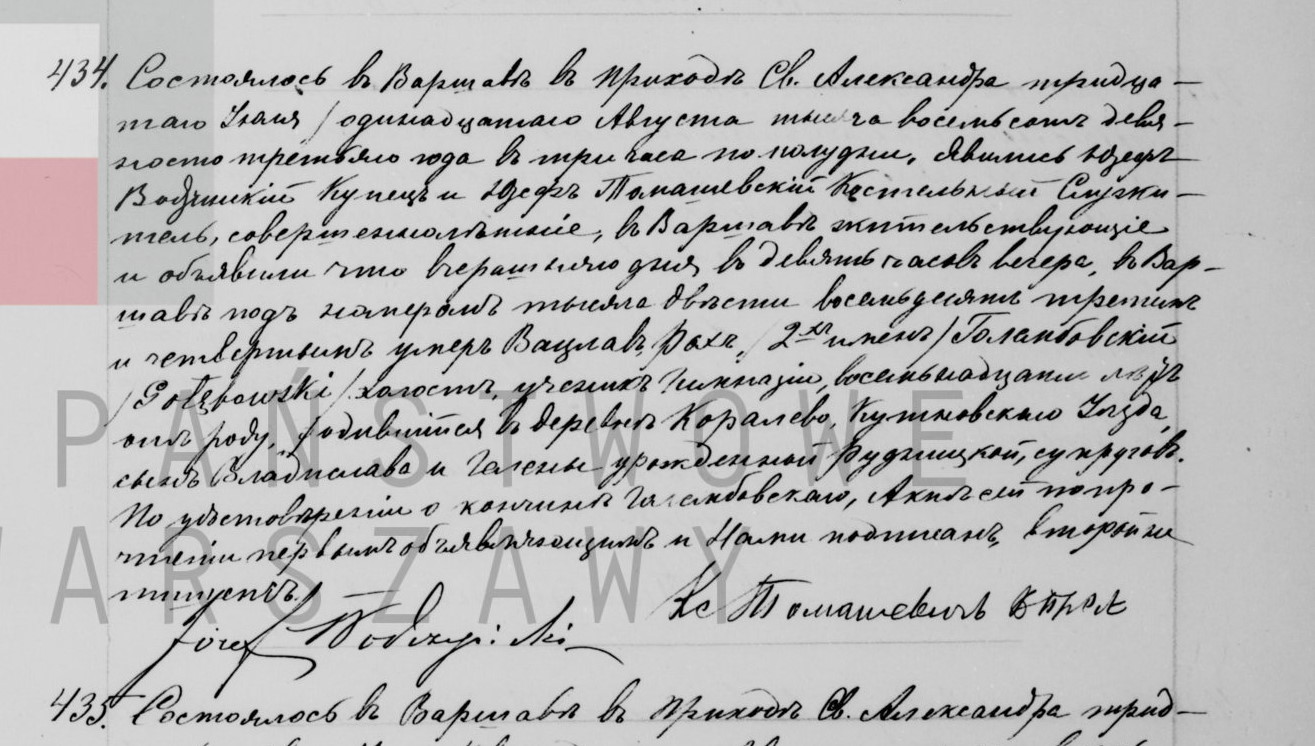 434. Состоялось въ Варшавѣ въ приходѣ Св. Александра тридца-
таго Іюля / одинадцатаго Августа тысяча восемьсотъ девя-
носто третьяго года въ три часа по полудни. Явились Юзефъ
Купецъ и Юзефъ Томашевскій Костельный Служи-
тель, совершеннолѣтніе, въ Варшавѣ жительствующіе
и объявили что вчерашняго дня, въ девять часовъ вечера, въ Вар-
шавѣ подъ номеромъ тысяча двѣсти восемьдесятъ третимъ
и четвертымъ умеръ Вацлавъ, Рохъ, / 2хъ именъ / Голембовскій
/ Gołębowski / холостъ, ученикъ Гимназіи, восемьнадцати лѣтъ
отъ роду, родившійся въ деревнѣ Коралево, Кутновскаго Уѣзда,
сынъ Владислава и Гелены урожденной Рудницкой, супруговъ.
По удостовѣреніи о кончинѣ Голембовскаго, Актъ сей по про-
чтеніи первымъ объявляющимъ и Нами подписанъ, второй не
пишущъ.
Кс Томашевичъ
Józef
435. Состоялось въ Варшавѣ въ приходѣ Св. Александра трид-
PAŃSTWOWE
WARSZAWY